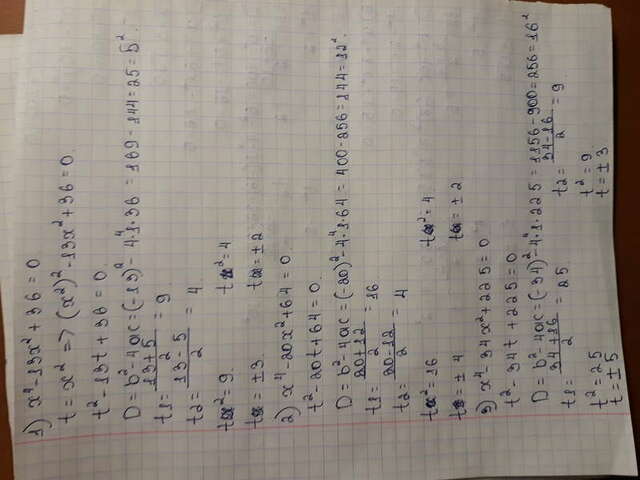 1) x⁴-13x²+36=0
t=x² => (x²)²-13x²+36=0.
t²-13t+36=0.
D=b²-4ac=(-13)²-4·1·36=169-144=25=5².
t1=(13+5)/2=9
t2=(13-5)/2=4
x²=9. x²=4
x=±3. x=±2
2) x⁴-20x²+64=0.
t²-20t+64=0.
D=b²-4ac=(-20)²-4·1·64=400-256=144=12².
t1=(20+12)/2=16
t2=(20-12)/2=4
x²=16 x²=4
x=±4 x=±2
3) x⁴-34x²+225=0
t²-34t+225=0
D=b²-4ac=(-34)²-4·1·225=1156-900=256=16²
t1=(34+16)/2=25 t2=(34-16)/2=9
t²=25 t²=9.
t=±5 t=±3